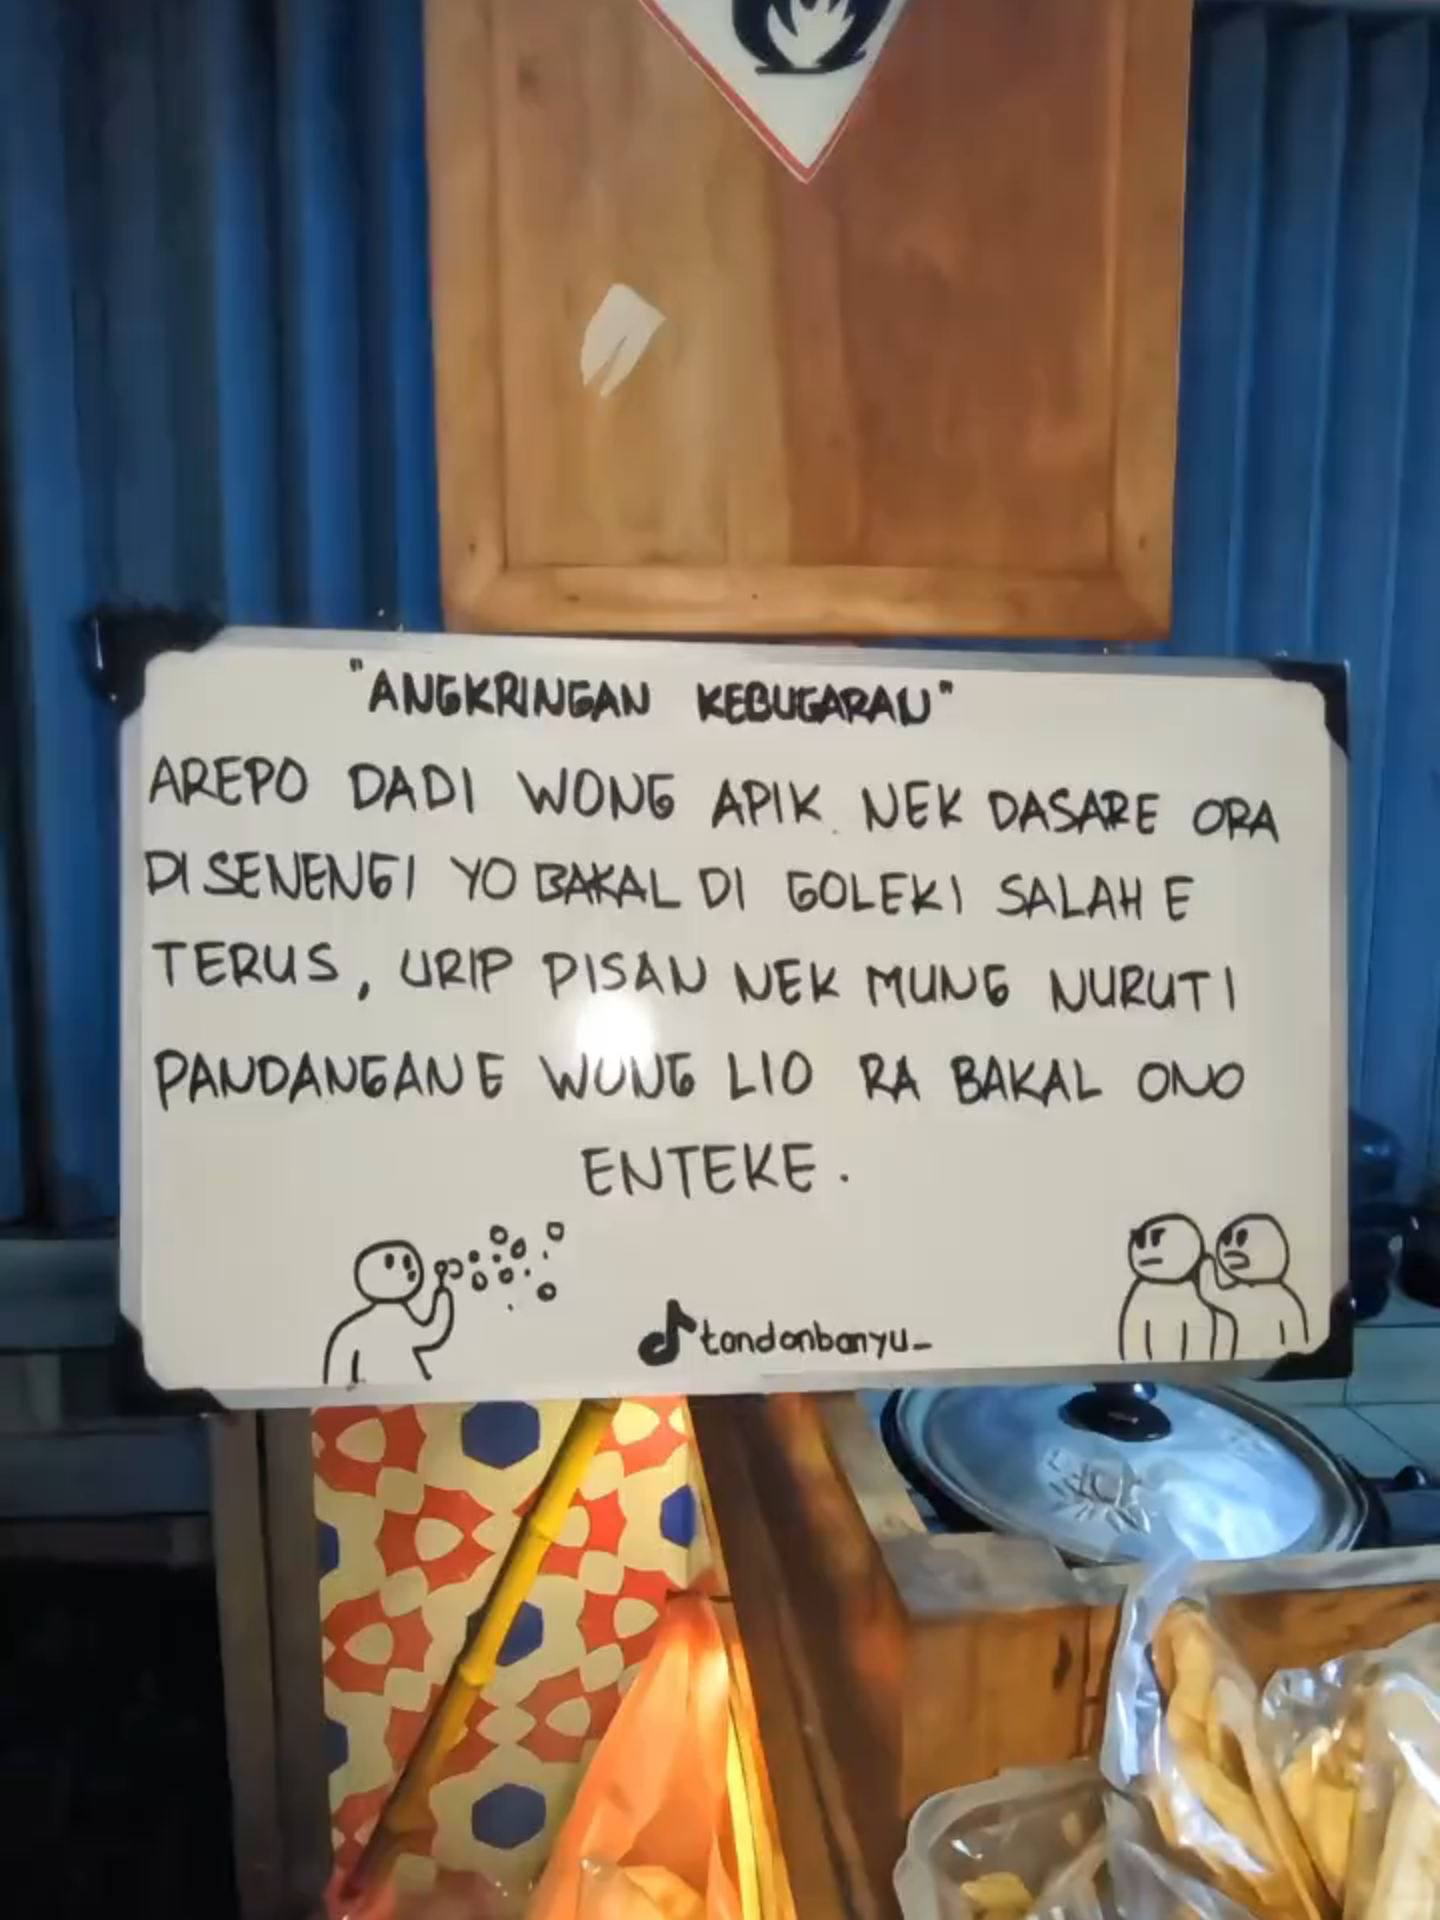 "ANGKRINGAN KEBUGARAN"
AREPO DADI WONG APIK NEK DASARE ORA
DI SENENGI YO BAKAL DI GOLEKI SALAH E
TERUS, URIP PISAN NEK MUNG NURUTI
PANDANGANE WONG LIO RA BAKAL ONO
ENTEKE.
tandonbanyu_